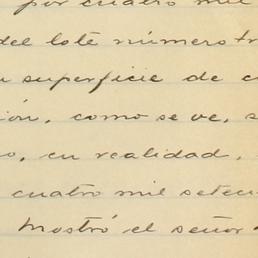 por cuatro mil
del lote número tr
superficie de c
ión, como se ve, s
o, en realidad,
cuatro mil setec
Mostró el señor